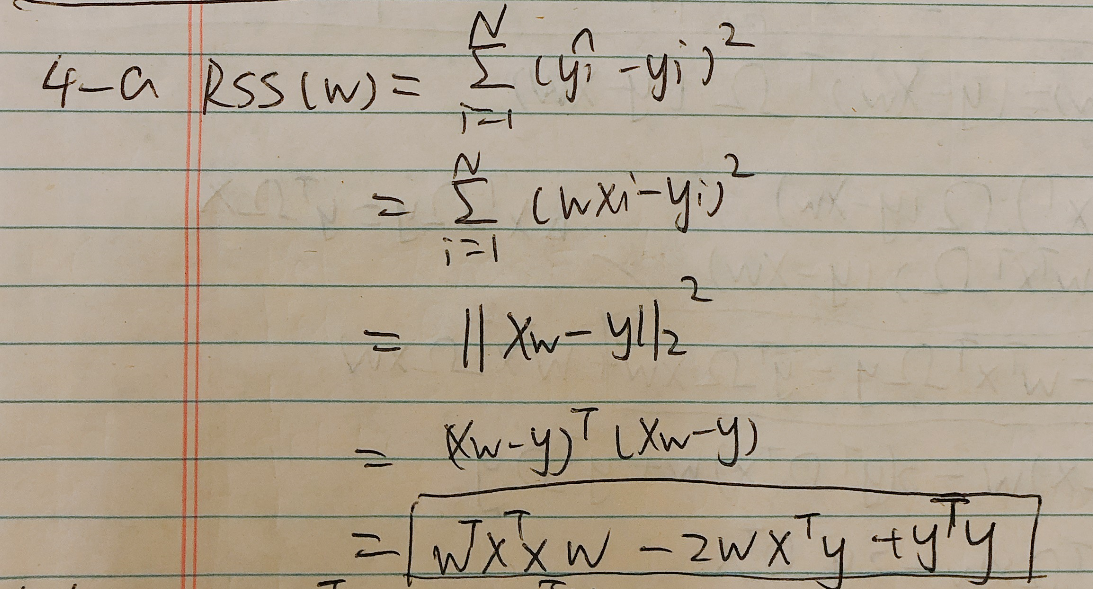 4-a RSS(w) = Σ_{i=1}^{N} (ŷi - yi)²
= Σ_{i=1}^{N} (wxi - yi)²
= ||Xw - y||₂²
= (Xw-y)ᵀ (Xw-y)
= wᵀxᵀxw - 2wxᵀy + yᵀy